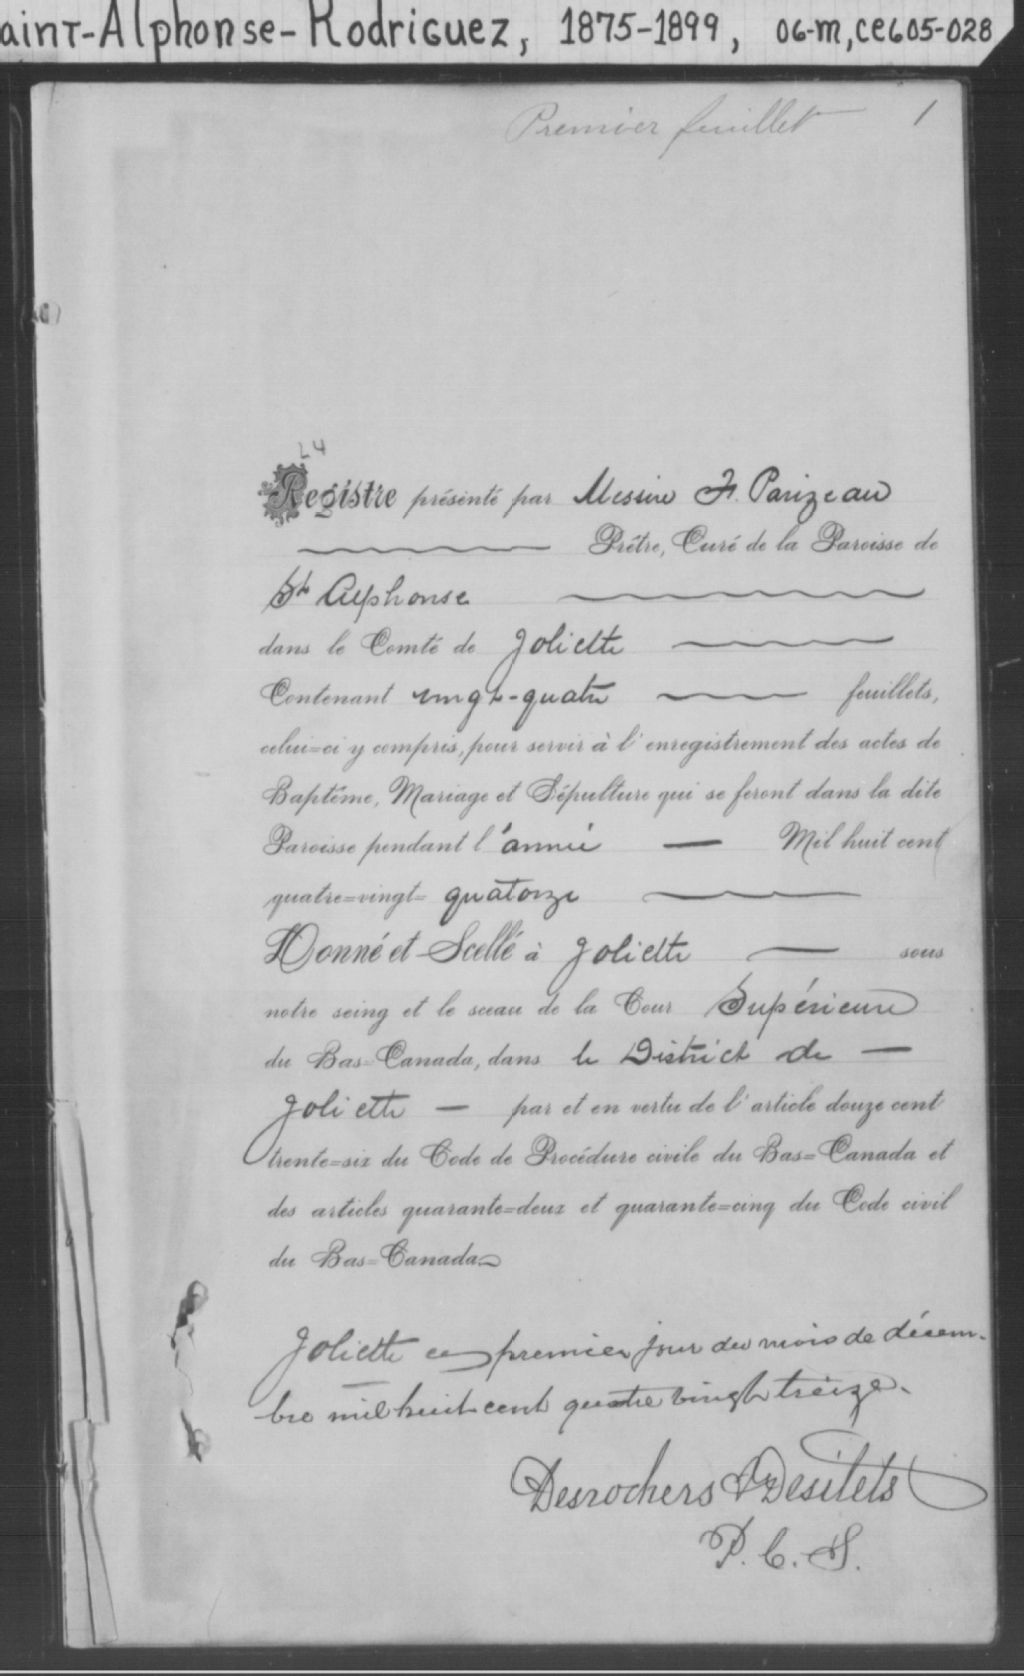 aint-Alphonse-Rodriguez, 1875-1899, 06-M, CE605-028
Premier feuillet 1
24
Registre présenté par Messire F. Parizeau
Prêtre, Curé de la Paroisse de
St Alphonse
dans le Comté de Joliette
Contenant vingt-quatre feuillets,
celui=ci y compris, pour servir à l'enregistrement des actes de
Baptême, Mariage et Sépulture qui se feront dans la dite
Paroisse pendant l'année — Mil huit cent
quatre=vingt= quatorze
Donné et Scellé à Joliette — sous
notre seing et le sceau de la Cour Supérieure
du Bas=Canada, dans le District de —
Joliette — par et en vertu de l'article douze cent
trente=six du Code de Procédure civile du Bas=Canada et
des articles quarante=deux et quarante=cinq du Code civil
du Bas=Canada
Joliette ce premier jour du mois de décem-
bre mil huit cent quatre vingt treize.
Desrochers & Desilets
P. C. S.